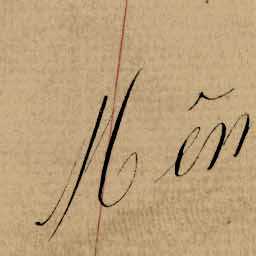 Mẽn